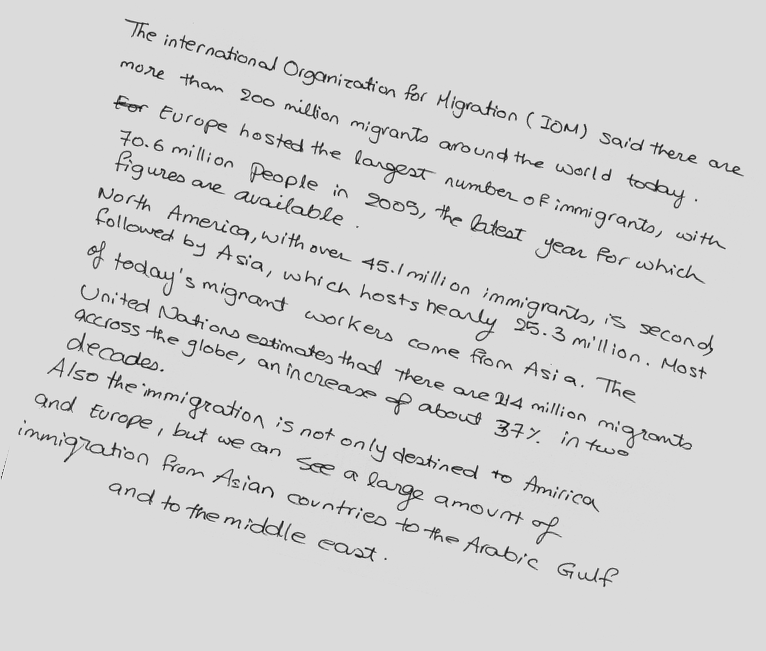 The international Organization for Migration (IOM) said there are
more than 200 million migrants around the world today.
Europe hosted the largest number of immigrants, with
70.6 million People in 2005, the latest year for which
figures are available.
North America, with over 45.1 million immigrants, is second,
followed by Asia, which hosts nearly 25.3 million. Most
of today's migrant workers come from Asia. The
United Nations estimates that there are 214 million migrants
accross the globe, an increase of about 37% in two
decades.
Also the immigration is not only destined to Amirica
and Europe, but we can see a large amount of
immigration from Asian countries to the Arabic Gulf
and to the middle east.